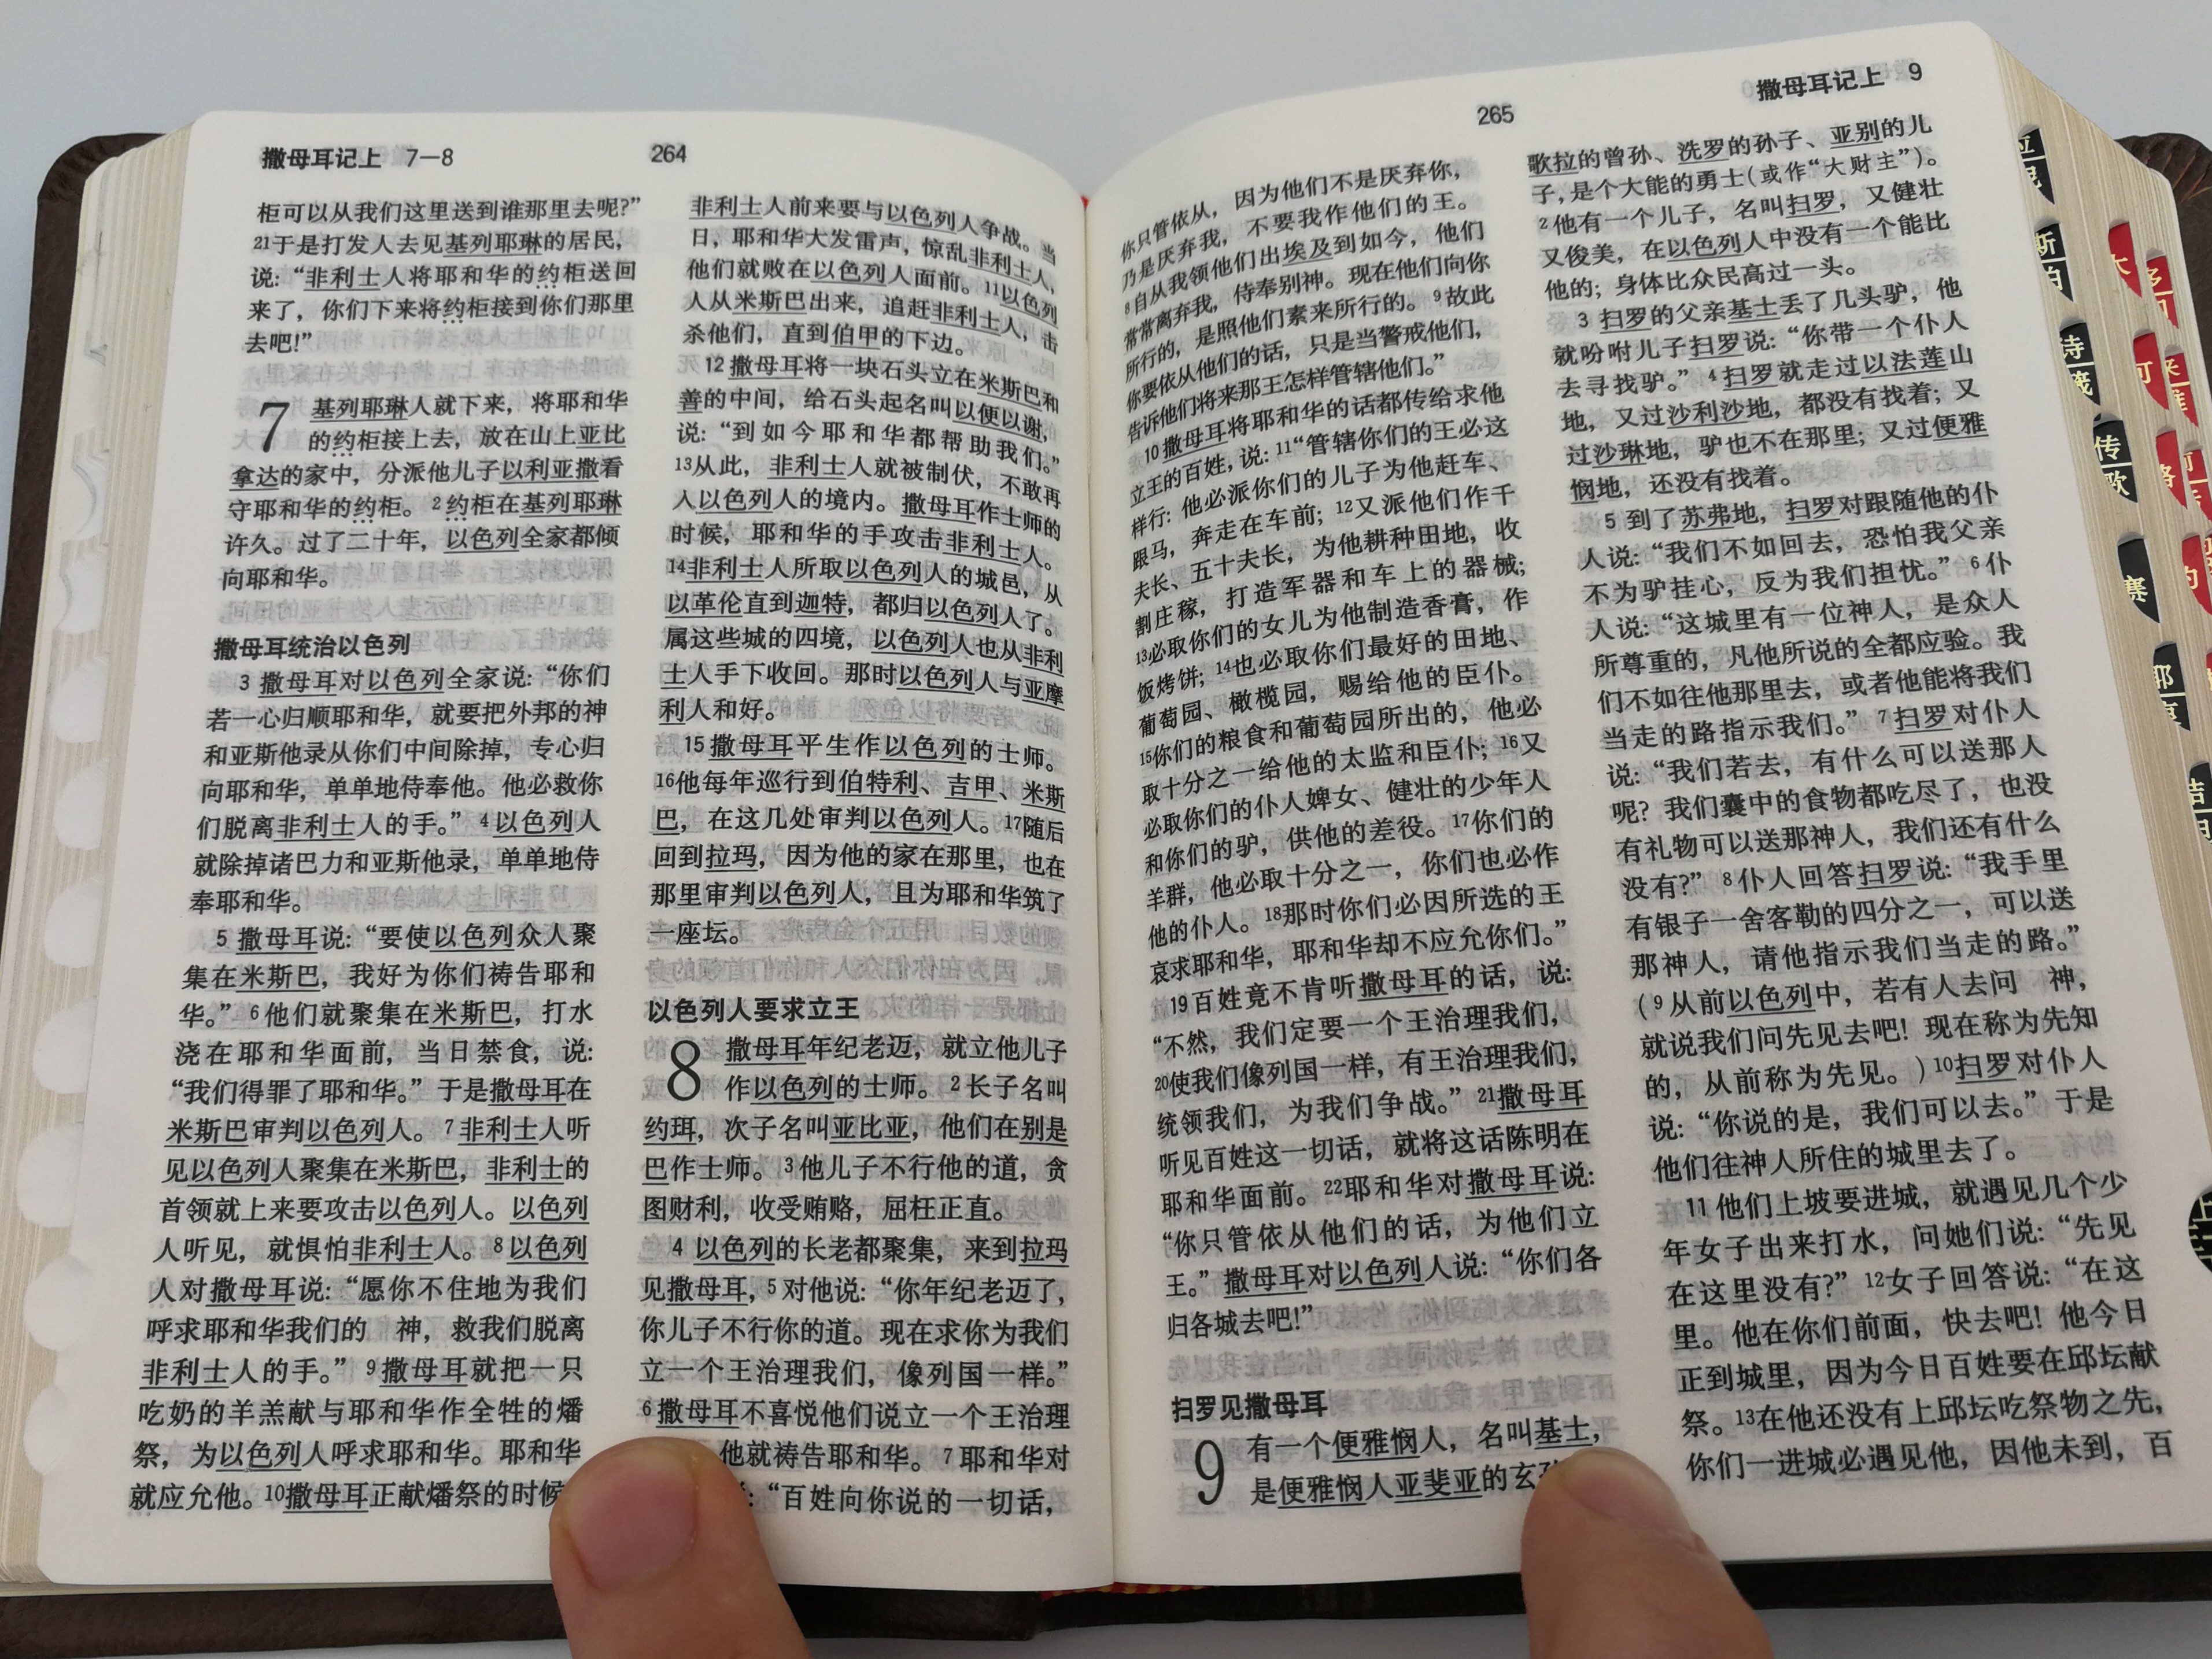 撒母耳记上 7—8
264
柜可以从我们这里送到谁那里去呢？”
21于是打发人去见基列耶琳的居民，
说：“非利士人将耶和华的约柜送回
来了，你们下来将约柜接到你们那里
去吧！”
7 基列耶琳人就下来，将耶和华
的约柜接上去，放在山上亚比
拿达的家中，分派他儿子以利亚撒看
守耶和华的约柜。2约柜在基列耶琳
许久。过了二十年，以色列全家都倾
向耶和华。
撒母耳统治以色列
3 撒母耳对以色列全家说：“你们
若一心归顺耶和华，就要把外邦的神
和亚斯他录从你们中间除掉，专心归
向耶和华，单单地侍奉他。他必救你
们脱离非利士人的手。”4以色列人
就除掉诸巴力和亚斯他录，单单地侍
奉耶和华。
5 撒母耳说：“要使以色列众人聚
集在米斯巴，我好为你们祷告耶和
华。”6他们就聚集在米斯巴，打水
浇在耶和华面前，当日禁食，说：
“我们得罪了耶和华。”于是撒母耳在
米斯巴审判以色列人。7非利士人听
见以色列人聚集在米斯巴，非利士的
首领就上来要攻击以色列人。以色列
人听见，就惧怕非利士人。8以色列
人对撒母耳说：“愿你不住地为我们
呼求耶和华我们的　神，救我们脱离
非利士人的手。”9撒母耳就把一只
吃奶的羊羔献与耶和华作全牲的燔
祭，为以色列人呼求耶和华。耶和华
就应允他。10撒母耳正献燔祭的时候
非利士人前来要与以色列人争战。当
日，耶和华大发雷声，惊乱非利士人，
他们就败在以色列人面前。11以色列
人从米斯巴出来，追赶非利士人，击
杀他们，直到伯甲的下边。
12 撒母耳将一块石头立在米斯巴和
善的中间，给石头起名叫以便以谢，
说：“到如今耶和华都帮助我们。”
13从此，非利士人就被制伏，不敢再
入以色列人的境内。撒母耳作士师的
时候，耶和华的手攻击非利士人。
14非利士人所取以色列人的城邑，从
以革伦直到迦特，都归以色列人了。
属这些城的四境，以色列人也从非利
士人手下收回。那时以色列人与亚摩
利人和好。
15 撒母耳平生作以色列的士师。
16他每年巡行到伯特利、吉甲、米斯
巴，在这几处审判以色列人。17随后
回到拉玛，因为他的家在那里，也在
那里审判以色列人，且为耶和华筑了
一座坛。
以色列人要求立王
8 撒母耳年纪老迈，就立他儿子
作以色列的士师。2长子名叫
约珥，次子名叫亚比亚，他们在别是
巴作士师。3他儿子不行他的道，贪
图财利，收受贿赂，屈枉正直。
4 以色列的长老都聚集，来到拉玛
见撒母耳，5对他说：“你年纪老迈了，
你儿子不行你的道。现在求你为我们
立一个王治理我们，像列国一样。”
6撒母耳不喜悦他们说立一个王治理
他就祷告耶和华。7耶和华对
：“百姓向你说的一切话，
265
撒母耳记上 9
你只管依从，因为他们不是厌弃你，
乃是厌弃我，不要我作他们的王。
8自从我领他们出埃及到如今，他们
常常离弃我，侍奉别神。现在他们向你
所行的，是照他们素来所行的。9故此
你要依从他们的话，只是当警戒他们，
告诉他们将来那王怎样管辖他们。”
10 撒母耳将耶和华的话都传给求他
立王的百姓，说：11“管辖你们的王必这
样行：他必派你们的儿子为他赶车、
跟马，奔走在车前；12又派他们作千
夫长、五十夫长，为他耕种田地，收
割庄稼，打造军器和车上的器械；
13必取你们的女儿为他制造香膏，作
饭烤饼；14也必取你们最好的田地、
葡萄园、橄榄园，赐给他的臣仆。
15你们的粮食和葡萄园所出的，他必
取十分之一给他的太监和臣仆；16又
必取你们的仆人婢女、健壮的少年人
和你们的驴，供他的差役。17你们的
羊群，他必取十分之一，你们也必作
他的仆人。18那时你们必因所选的王
哀求耶和华，耶和华却不应允你们。”
19 百姓竟不肯听撒母耳的话，说：
“不然，我们定要一个王治理我们，
20使我们像列国一样，有王治理我们，
统领我们，为我们争战。”21撒母耳
听见百姓这一切话，就将这话陈明在
耶和华面前。22耶和华对撒母耳说：
“你只管依从他们的话，为他们立
王。”撒母耳对以色列人说：“你们各
归各城去吧！”
扫罗见撒母耳
9 有一个便雅悯人，名叫基士，
是便雅悯人亚斐亚的玄孙
歌拉的曾孙、洗罗的孙子、亚别的儿
子，是个大能的勇士（或作“大财主”）。
2他有一个儿子，名叫扫罗，又健壮
又俊美，在以色列人中没有一个能比
他的；身体比众民高过一头。
3 扫罗的父亲基士丢了几头驴，他
就吩咐儿子扫罗说：“你带一个仆人
去寻找驴。”4扫罗就走过以法莲山
地，又过沙利沙地，都没有找着；又
过沙琳地，驴也不在那里；又过便雅
悯地，还没有找着。
5 到了苏弗地，扫罗对跟随他的仆
人说：“我们不如回去，恐怕我父亲
不为驴挂心，反为我们担忧。”6仆
人说：“这城里有一位神人，是众人
所尊重的，凡他所说的全都应验。我
们不如往他那里去，或者他能将我们
当走的路指示我们。”7扫罗对仆人
说：“我们若去，有什么可以送那人
呢？我们囊中的食物都吃尽了，也没
有礼物可以送那神人，我们还有什么
没有？”8仆人回答扫罗说：“我手里
有银子一舍客勒的四分之一，可以送
那神人，请他指示我们当走的路。”
（9从前以色列中，若有人去问　神，
就说我们问先见去吧！现在称为先知
的，从前称为先见。）10扫罗对仆人
说：“你说的是，我们可以去。”于是
他们往神人所住的城里去了。
11 他们上坡要进城，就遇见几个少
年女子出来打水，问她们说：“先见
在这里没有？”12女子回答说：“在这
里。他在你们前面，快去吧！他今日
正到城里，因为今日百姓要在邱坛献
祭。13在他还没有上邱坛吃祭物之先，
你们一进城必遇见他，因他未到，百
斯
伯
诗
箴
传
歌
赛
耶
哀
大
可
路
约